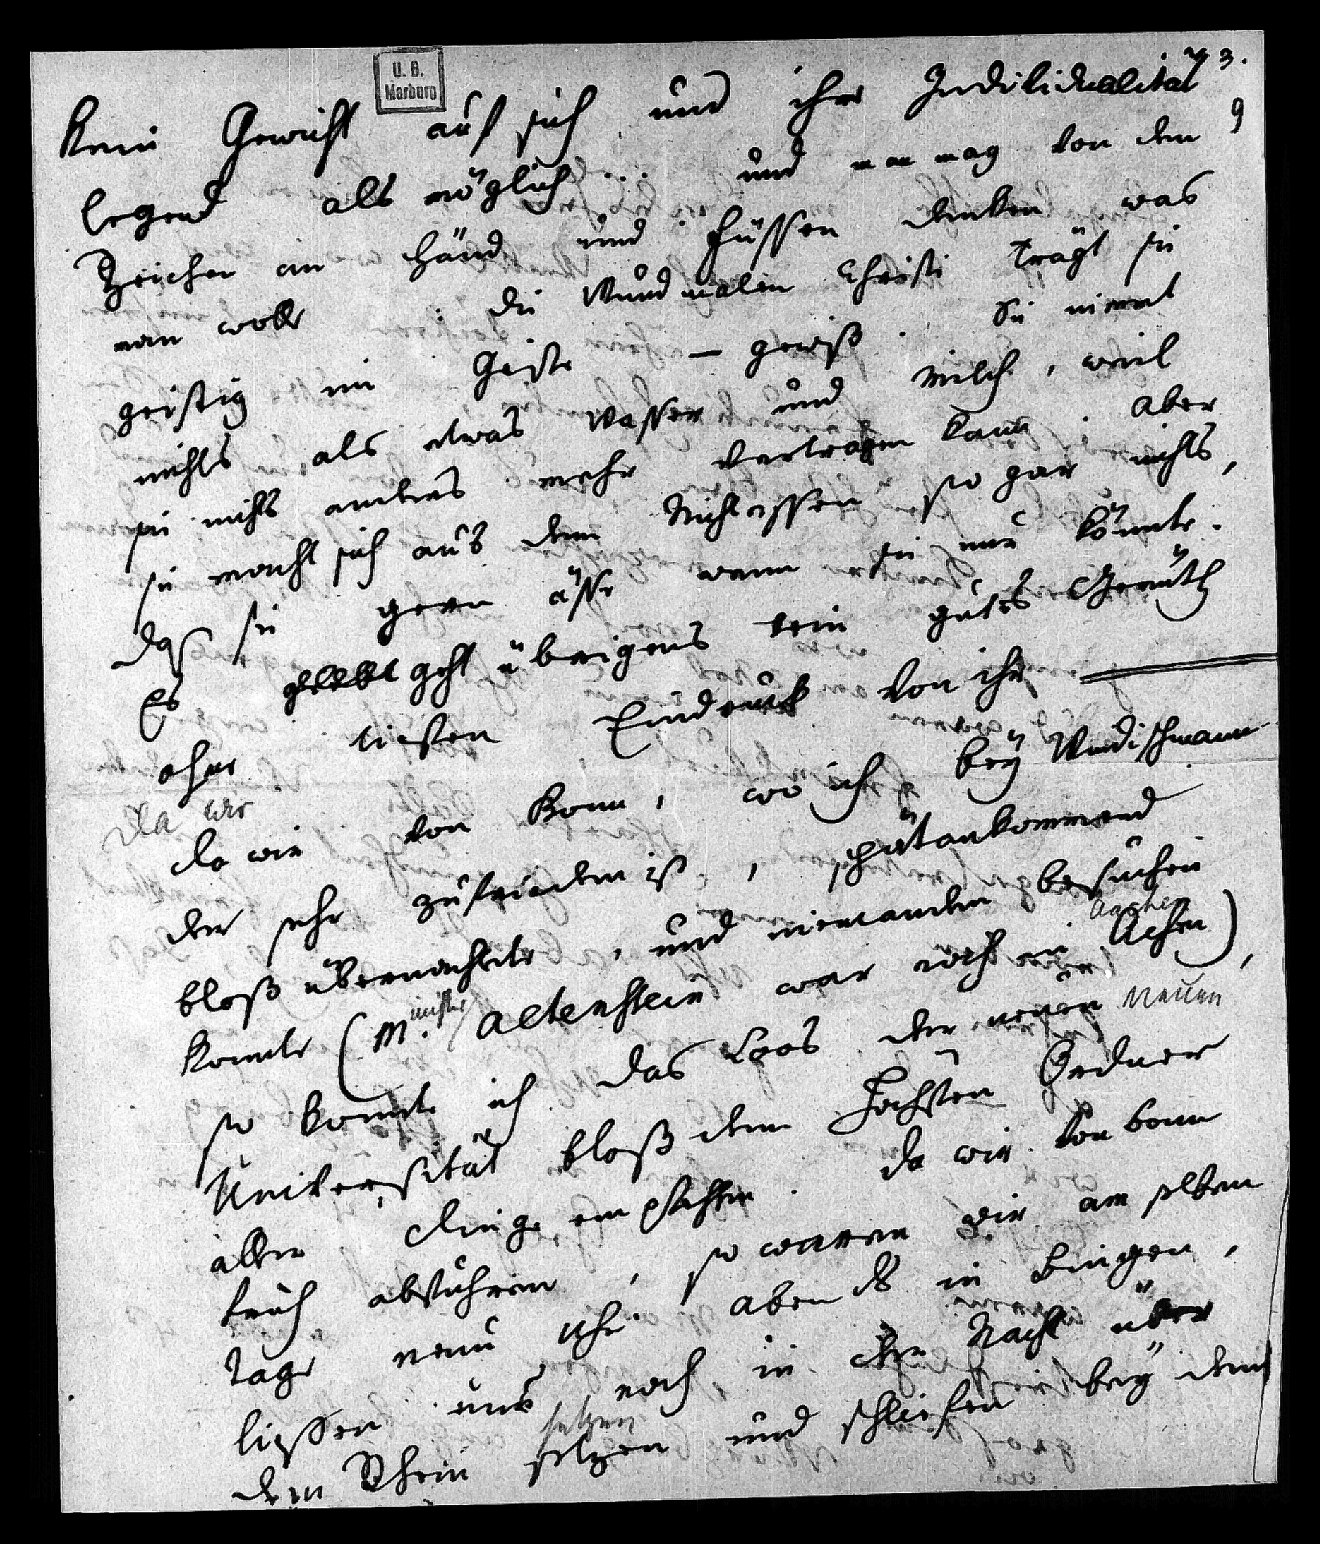 3.
9
U. B.
Marburg
kein Gewicht auf sich und ihre Individualität
legend als möglich ... und man mag von dem
Zeichen an Händ und Füssen denken was
man wolle : die Wundmalen Christi trägt sie
geistig im Geiste — gewiß. Sie nimmt
nichts als etwas Wasser und Milch, weil
sie nichts anders mehr vertragen kann. Aber
sie macht sich aus dem Nichtessen so gar nichts,
daß sie gern äße wenn sie nur könnte.
Es geht übrigens kein gutes Gemüth
ohne tiefen Eindruck von ihr
da wir
da wir von Bonn, wo ich bey Windischmann
der sehr zufrieden ist, spät ankommend
bloß übernachtete, und niemanden besuchen
Aachen
konnte (M. Altenstein war noch in Achen),
inister
so konnte ich das Loos der neuen
Neuen
Universität bloß dem höchsten Ordner
aller Dinge empfehlen. Da wir von bonn
früh abfuhren, so waren wir am selben
Tage neun Uhr abends in Bingen,
ließen uns noch in der Nacht über
setzen
den Rhein setzen und schliefen bey dem